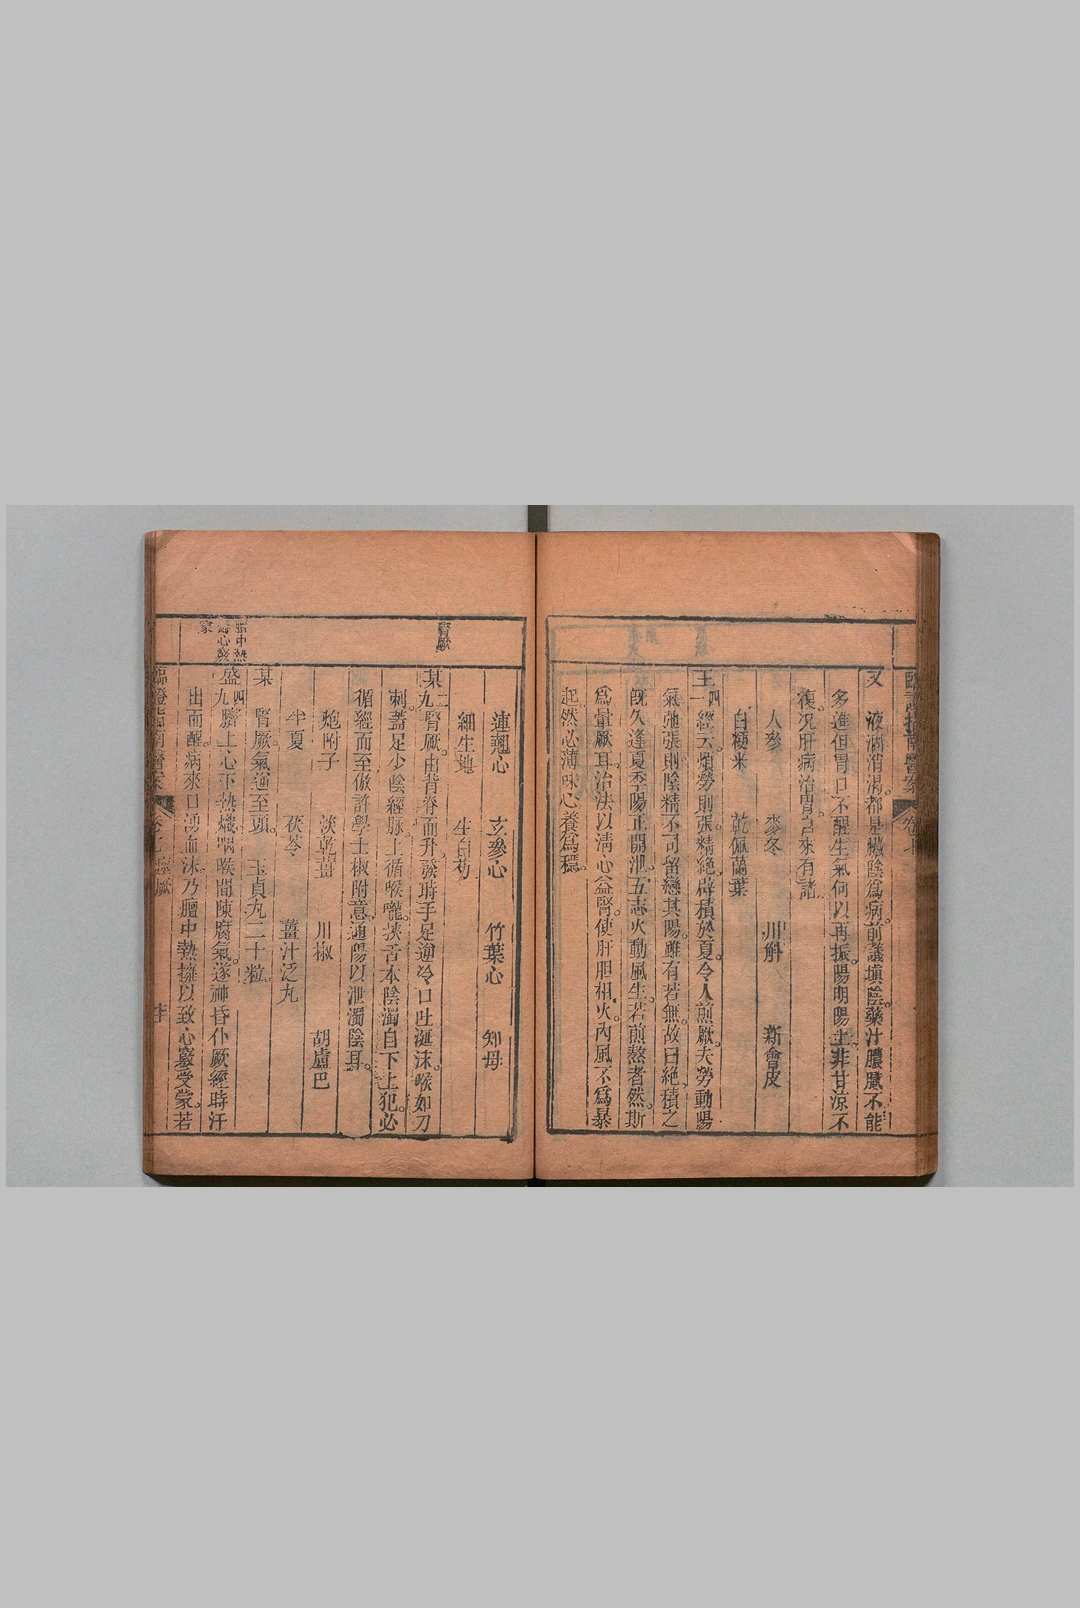 又　液涸消渴。都是臟陰爲病。前議塡陰。藥汁膿膩。不能
多進。但胃口不醒。生氣何以再振。陽明陽土。非甘涼不
復。況肝病治胃。古來有諸。
人參　麥冬　川斛　新會皮
白粳米　乾佩蘭葉
王四一　經云。煩勞則張。精絕。辟積於夏。令人煎厥。夫勞動陽
氣弛張。則陰精不司留戀其陽。雖有若無。故曰絕。積之
旣久。逢夏季陽正開泄。五志火動風生。若煎熬者然。斯
爲暈厥耳。治法以清心益腎。使肝胆相火內風。不爲暴
起。然必薄味心養爲穩。
連翹心　玄參心　竹葉心　知母
細生地　生白芍
腎厥
某二九　腎厥。由背脊而升。發時手足逆冷。口吐涎沫。喉如刀
刺。蓋足少陰經脉。上循喉嚨。挾舌本。陰濁自下上犯。必
循經而至。倣許學士椒附意。通陽以泄濁陰耳。
炮附子　淡乾薑　川椒　胡盧巴
半夏　茯苓　薑汁泛丸
某　腎厥。氣逆至頭。　玉貞丸二十粒。
膻中熱
盛四九　臍上心下熱熾。咽喉間陳腐氣。遂神昏仆厥。經時汗
出而醒。病來口湧血沫。乃膻中熱擁。以致心竅受蒙。若
臨證指南醫案　卷七